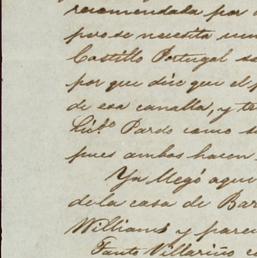 recomendala por
pero se necesita mu
Castillo Portugal se
por que dice que el p
de esa canalla, y te
Lic.do Pardo como s
pues ambos hacen
Ya llegó aqui
de la casa de Bar
Williams y pare
Tanto Villariño c